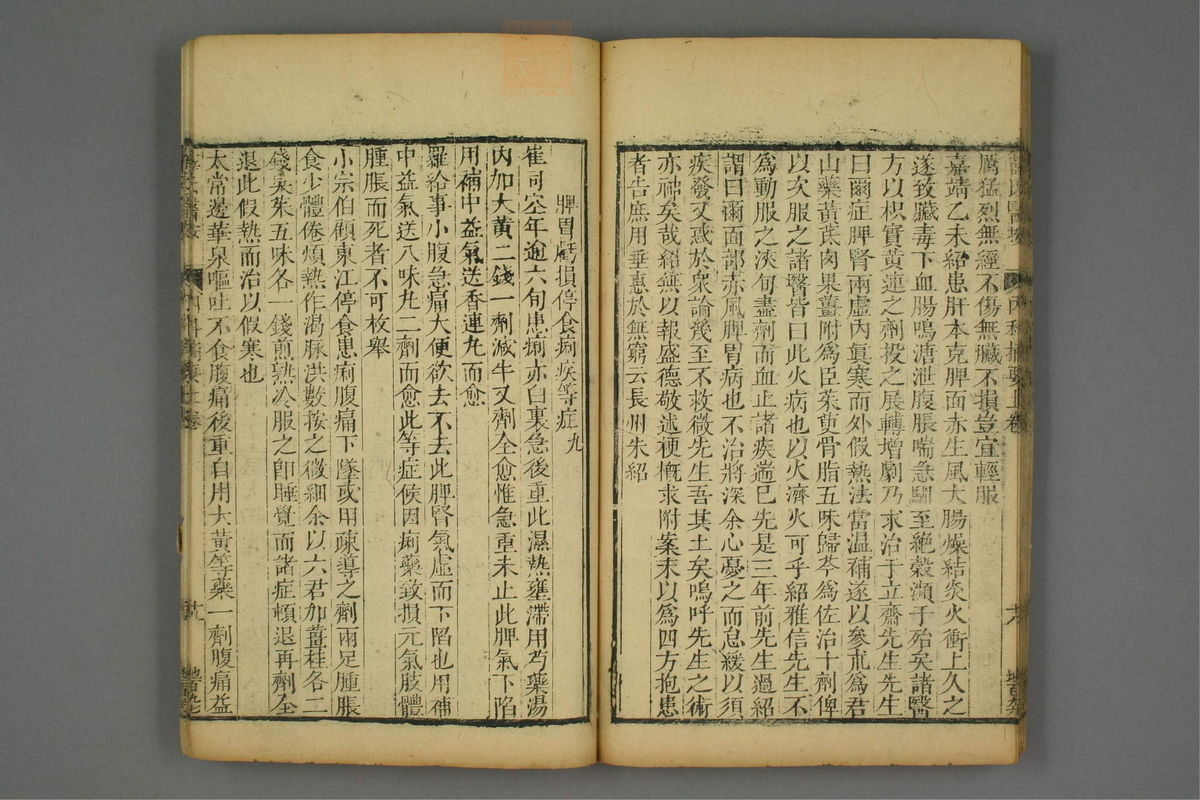 厲猛烈無經不傷無臟不損豈宜輕服
嘉靖乙未紹患肝木克脾面赤生風大腸燥結炎火衝上久之
遂致臟毒下血腸鳴溏泄腹脹喘急馴至絶穀瀕于殆矣諸醫
方以枳實黃連之劑投之展轉增劇乃求治于立齋先生先生
曰爾症脾腎兩虛內真寒而外假熱法當温補遂以參朮為君
山藥黃茋肉果薑附為臣茱萸骨脂五味歸苓為佐治十劑俾
以次服之諸醫皆曰此火病也以火濟火可乎紹雅信先生不
為動服之浹旬盡劑而血止諸疾遄已先是三年前先生過紹
謂曰爾面部赤風脾胃病也不治將深余心憂之而怠緩以須
疾發又惑於衆論幾至不救微先生吾其土矣嗚呼先生之術
亦神矣哉紹無以報盛德敬述梗概求附案末以為四方抱患
者告庶用垂惠於無窮云長州朱紹
脾胃虧損停食痢疾等症九
崔司空年逾六旬患痢亦白裏急後重此濕熱壅滯用芍藥湯
內加大黃二錢一劑減半又劑全愈惟急重未止此脾氣下陷
用補中益氣送香連丸而愈
羅給事小腹急痛大便欲去不去此脾腎氣虛而下陷也用補
中益氣送八味丸二劑而愈此等症候因痢藥致損元氣肢體
腫脹而死者不可枚舉
小宗伯顧東江停食患痢腹痛下墜或用疎導之劑兩足腫脹
食少體倦煩熱作渴脉洪數按之微細余以六君加薑桂各二
錢吳茱五味各一錢煎熟冷服之卽睡覺而諸症頓退再劑全
退此假熱而治以假寒也
太常邊華泉嘔吐不食腹痛後重自用大黃等藥一劑腹痛益